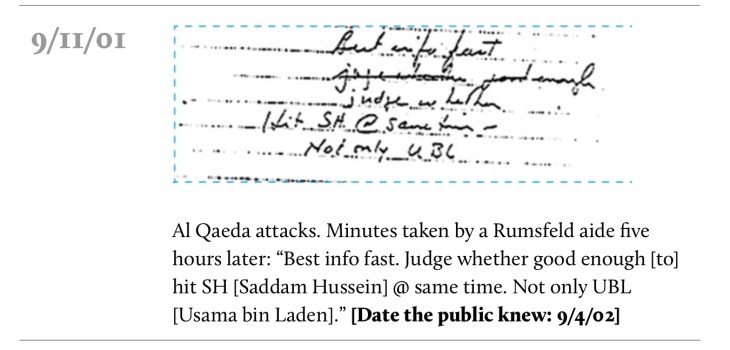 9/11/01
Best info fast
judge whether good enough
judge whether
Hit SH @ same time -
Not only UBL
Al Qaeda attacks. Minutes taken by a Rumsfeld aide five
hours later: “Best info fast. Judge whether good enough [to]
hit SH [Saddam Hussein] @ same time. Not only UBL
[Usama bin Laden].” [Date the public knew: 9/4/02]